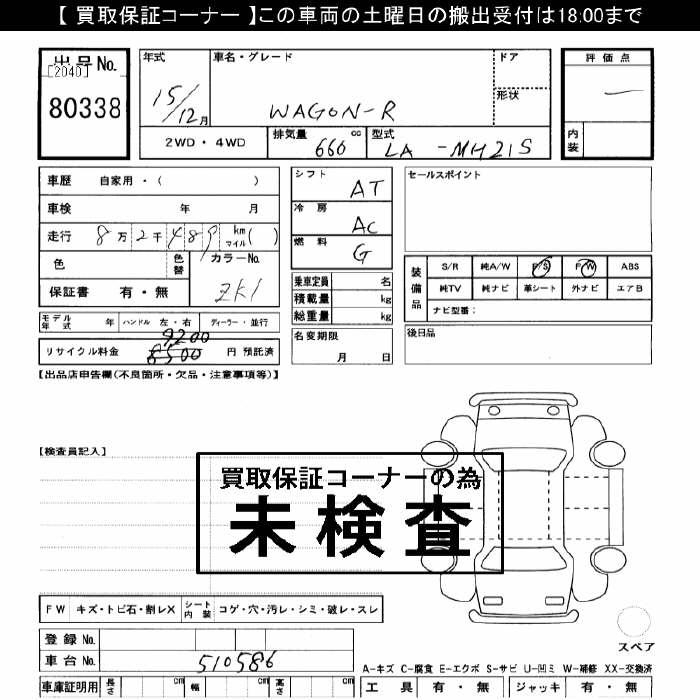 【 買取保証コーナー 】この車両の土曜日の搬出受付は18:00まで
出品No.
[2040]
80338
年式
15/12月
車名・グレード
WAGON-R
ドア
形状
評価点
—
内装
2WD・4WD
排気量 660 cc
型式 LA-MH21S
車歴 自家用・( )
車検 年 月
走行 8万2千489 km マイル( )
色 色替 カラーNo.
ZK1
保証書 有・無
シフト AT
冷房 AC
燃料 G
セールスポイント
装備品
S/R 純A/W P/S P/W ABS
純TV 純ナビ 革シート 外ナビ エアB
ナビ型番:
乗車定員 名
積載量 kg
総重量 kg
モデル年式 年 ハンドル 左・右 ディーラー・並行
名変期限
月 日
後日品
9200
リサイクル料金 8500 円 預託済
【出品店申告欄(不良箇所・欠品・注意事項等)】
【検査員記入】
買取保証コーナーの為
未検査
FW キズ・トビ石・割レX シート内装 コゲ・穴・汚レ・シミ・破レ・スレ
登録No.
車台No. 510586
スペア
A-キズ C-腐食 E-エクボ S-サビ U-凹ミ W-補修 XX-交換済
車庫証明用 長さ cm 幅 cm 高さ cm
工具 有・無 ジャッキ 有・無